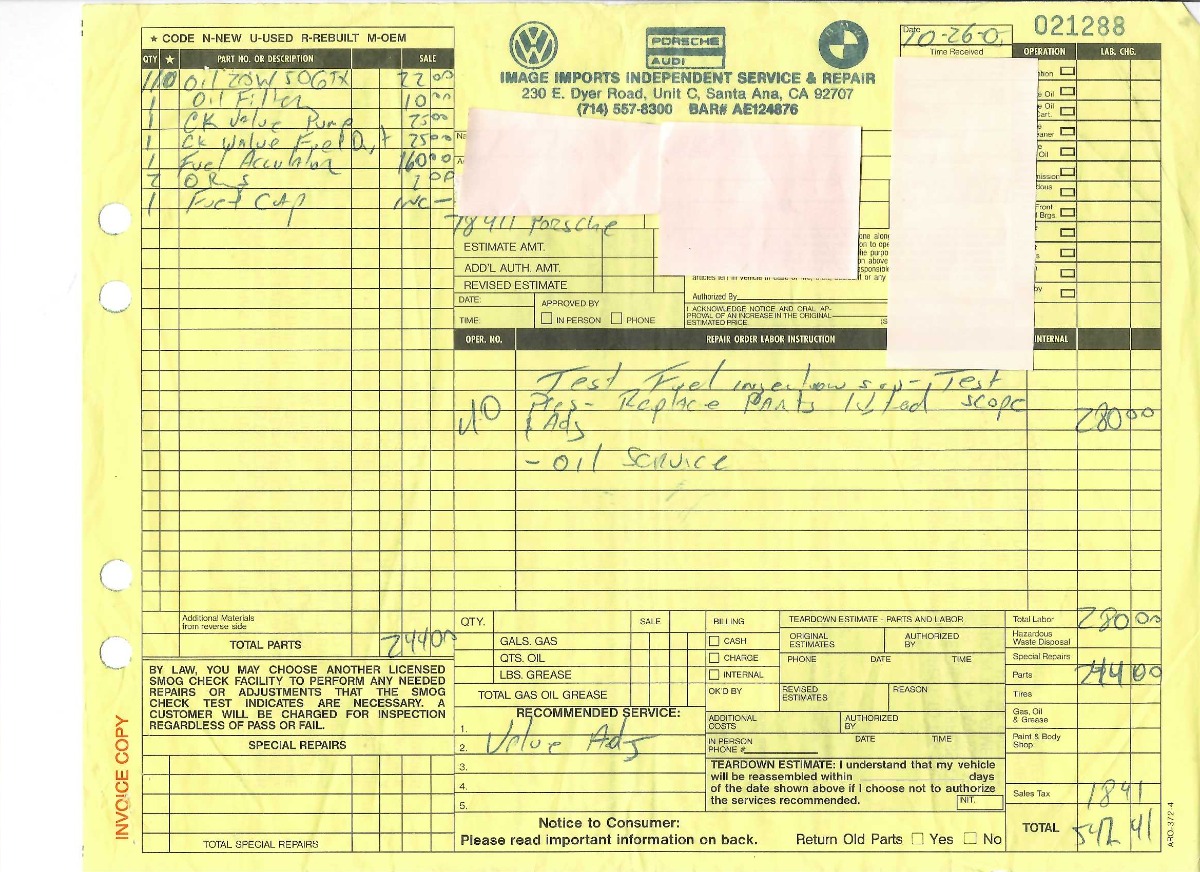 ★ CODE N-NEW U-USED R-REBUILT M-OEM
QTY ★ PART NO. OR DESCRIPTION SALE
Oil 20W50GTX 22 00
1 Oil Filter 10 00
1 CK Valve Pump 25 00
1 CK Valve Fuel Dist 25 00
1 Fuel 160 00
2 2 00
1 Fuel CAP INC
PORSCHE
AUDI
IMAGE IMPORTS INDEPENDENT SERVICE & REPAIR
230 E. Dyer Road, Unit C, Santa Ana, CA 92707
(714) 557-8300 BAR# AE124876
Date 10-26-0
Time Received
021288
OPERATION LAB. CHG.
Oil
Oil
Cart.
Oil
Front
Brgs.
78 911 Porsche
ESTIMATE AMT.
ADD'L AUTH. AMT.
REVISED ESTIMATE
DATE:
TIME:
APPROVED BY
IN PERSON PHONE
Authorized By
I ACKNOWLEDGE NOTICE AND ORAL AP-
PROVAL OF AN INCREASE IN THE ORIGINAL
ESTIMATED PRICE.
OPER. NO. REPAIR ORDER LABOR INSTRUCTION INTERNAL
Test Fuel injection Test
Pres- Replace Parts listed scope
& Adj 280 00
- Oil Service
Additional Materials
from reverse side
TOTAL PARTS 244 00
BY LAW, YOU MAY CHOOSE ANOTHER LICENSED
SMOG CHECK FACILITY TO PERFORM ANY NEEDED
REPAIRS OR ADJUSTMENTS THAT THE SMOG
CHECK TEST INDICATES ARE NECESSARY. A
CUSTOMER WILL BE CHARGED FOR INSPECTION
REGARDLESS OF PASS OR FAIL.
SPECIAL REPAIRS
TOTAL SPECIAL REPAIRS
INVOICE COPY
QTY. SALE
GALS. GAS
QTS. OIL
LBS. GREASE
TOTAL GAS OIL GREASE
RECOMMENDED SERVICE:
1.
2. Valve Adj
3.
4.
5.
BILLING
CASH
CHARGE
INTERNAL
OK'D BY
TEARDOWN ESTIMATE - PARTS AND LABOR
ORIGINAL
ESTIMATES
AUTHORIZED
BY
PHONE DATE TIME
REVISED
ESTIMATES
REASON
ADDITIONAL
COSTS
AUTHORIZED
BY
IN PERSON
PHONE #
DATE TIME
TEARDOWN ESTIMATE: I understand that my vehicle
will be reassembled within days
of the date shown above if I choose not to authorize
the services recommended.
INIT.
Notice to Consumer:
Please read important information on back.
Return Old Parts Yes No
Total Labor 280 00
Hazardous
Waste Disposal
Special Repairs
Parts 244 00
Tires
Gas, Oil
& Grease
Paint & Body
Shop
Sales Tax 18 41
TOTAL 542 41
ARO-372-4